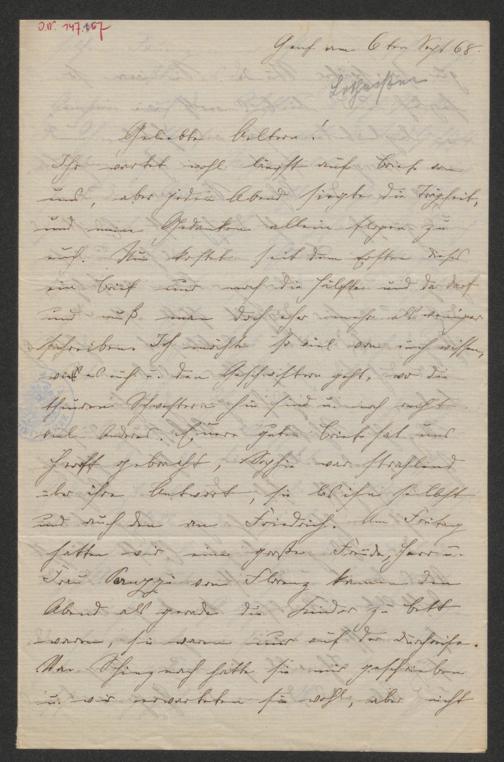 Genf am 6ten Sept 68.
Geliebte Aeltern!
Ihr wartet wohl längst auf Briefe von
uns, aber jeden Abend siegte die Trägheit,
und meine Gedanken allein flogen zu
euch. Nun kostet seit dem Ersten dieses
ein Brief nur noch die Hälfte und da darf
und muß man doch eher mehr als weniger
schreiben. Ich möchte so viel von euch wissen,
wie es euch u. den Geschwistern geht, wo die
theuren Schwestern hin sind u. noch recht
viel Anderes. Euere guten Briefe hat uns
gebracht, Sophie war strahlend
über ihre Antwort, sie las ihn selbst
und auch den an Friedrich. Am Freitag
hatten wir eine große Freude, Herr u.
Frau von Florenz kamen den
Abend als gerade die Kinder zu Bett
waren, sie waren nur auf der Durchreise.
Von Schinznach hatte sie mir geschrieben
u. wir erwarteten sie wohl, aber nicht